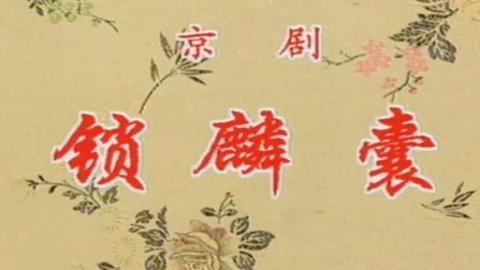 京剧
锁麟囊